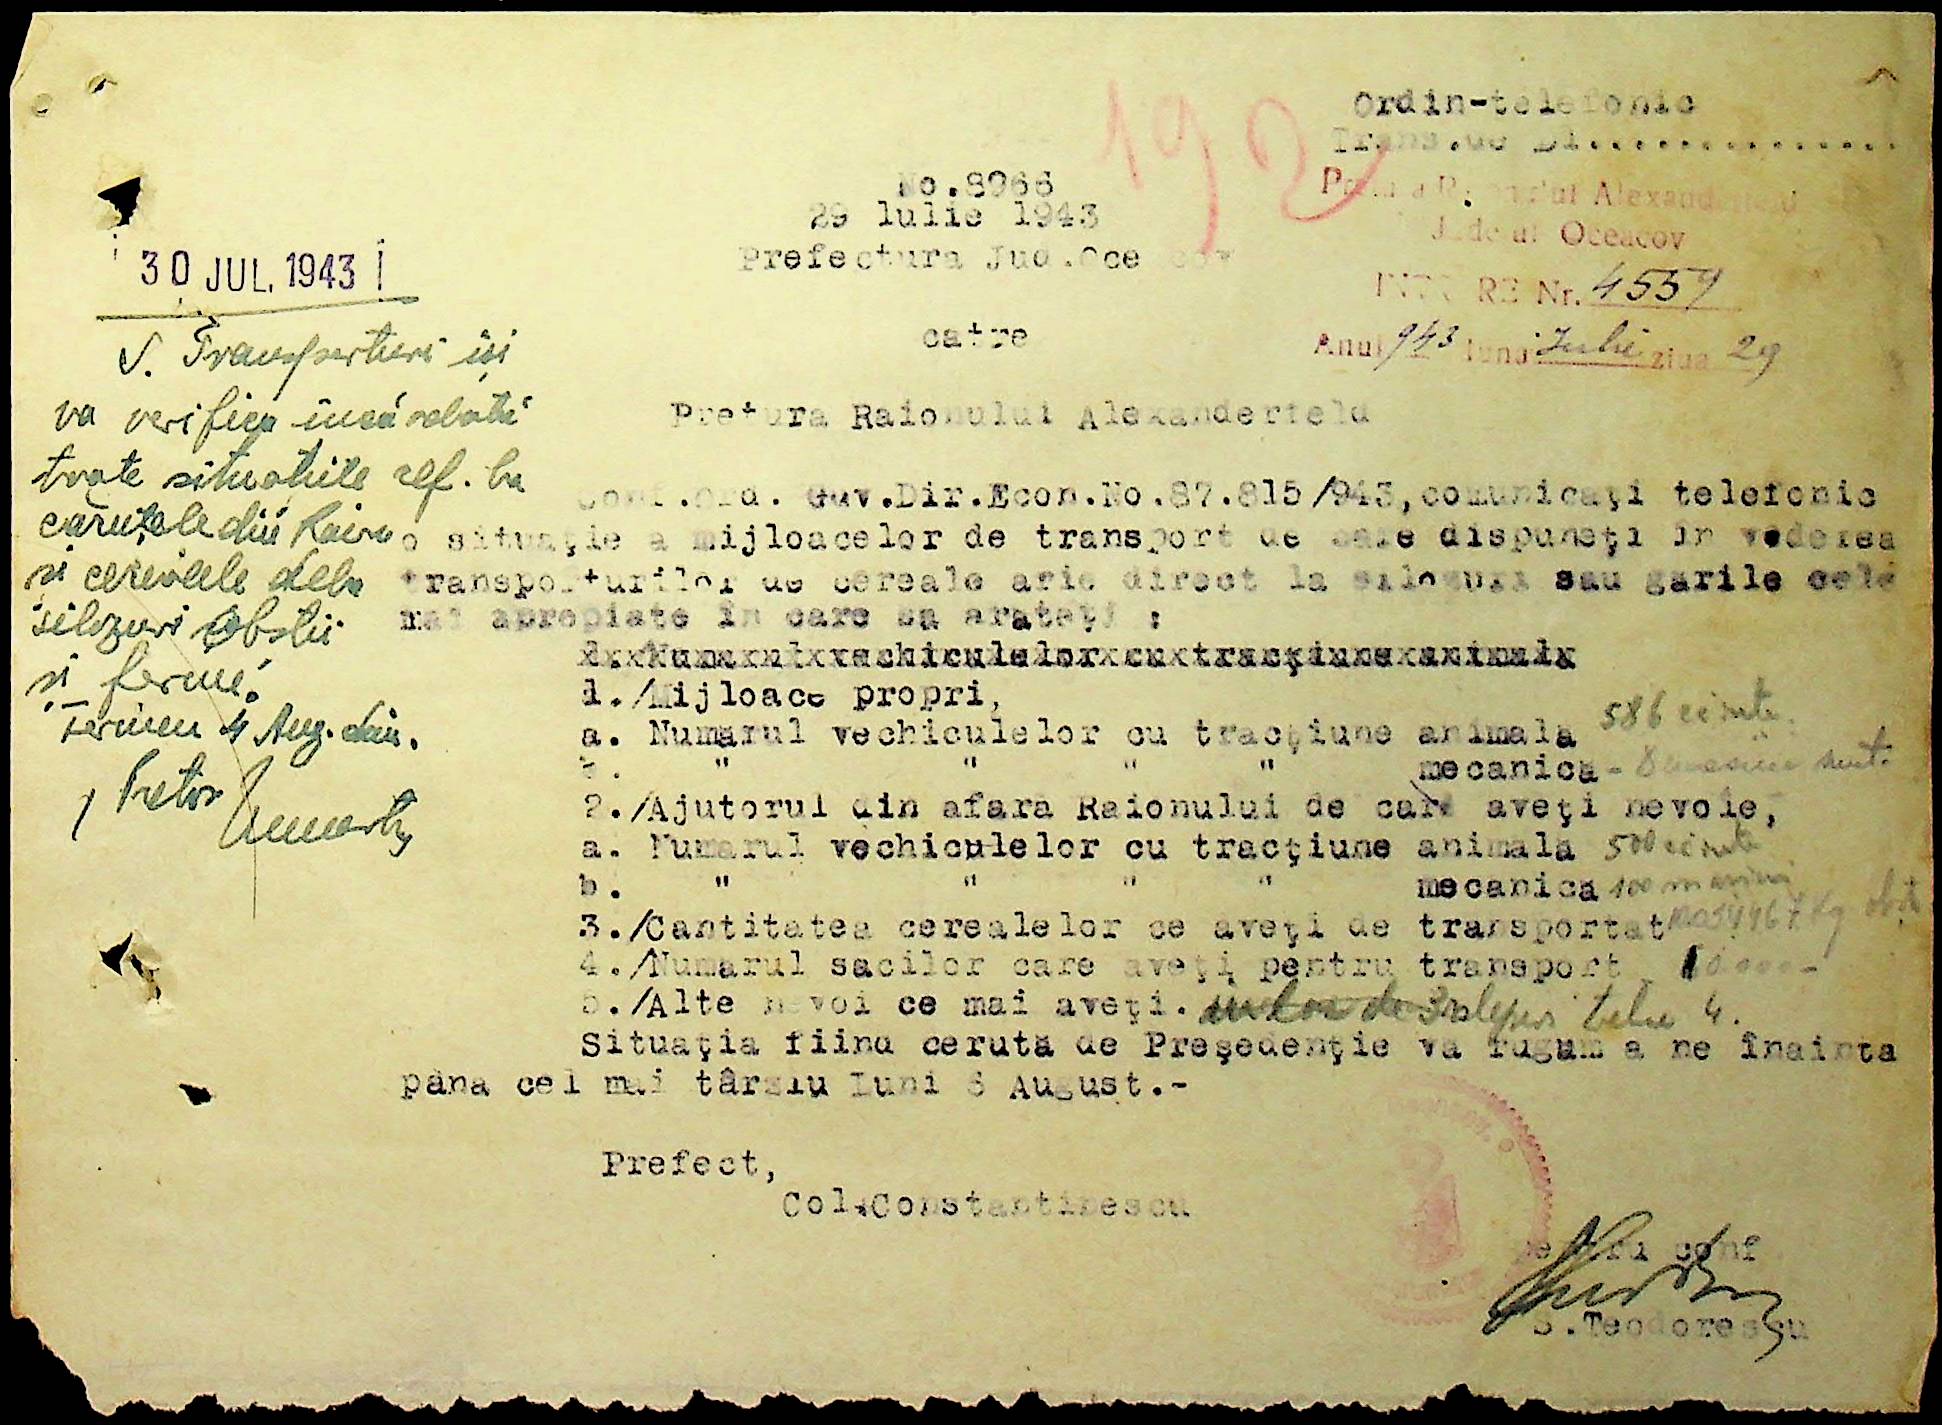 Ordin-telefonic
Trans.de D1................
192
No.8966
29 Iulie 1943
Prefectura Jud.Oceacov
Pretura Raionului Alexanderfeld
Judeţul Oceacov
INTRARE Nr. 4559
Anul 943 luna Iulie ziua 29
catre
Pretura Raionului Alexanderfeld
30 JUL. 1943
S. Transporturi îşi
va verifica încă odată
toate situaţiile ref. la
căruţele din Raion
şi cerealele dela
silozuri obştii
şi ferme.
Termen 4 Aug.
Pretor
Conf.Ord. Guv.Dir.Econ.No.87.815/943,comunicaţi telefonic
o situaţie a mijloacelor de transport de care dispuneţi în vederea
transporturilor de cereale arie direct la silozuri sau garile cele
mai apropiate în care sa arateţi :
Numarul vechiculelor cu tracţiune animala
1./Mijloace propri,
a. Numarul vechiculelor cu tracţiune animala 586
b. " " " " mecanica -
2./Ajutorul din afara Raionului de care aveţi nevoie,
a. Numarul vechiculelor cu tracţiune animala 500
b. " " " " mecanica 100 maşini
3./Cantitatea cerealelor ce aveţi de transportat
4./Numarul sacilor care aveţi pentru transport
5./Alte nevoi ce mai aveţi.
Situaţia fiind ceruta de Preşedenţie va rugam a ne înainta
pâna cel mai târziu Luni 8 August.-
Prefect,
Col.Constantinescu
pentru conf.
S.Teodorescu